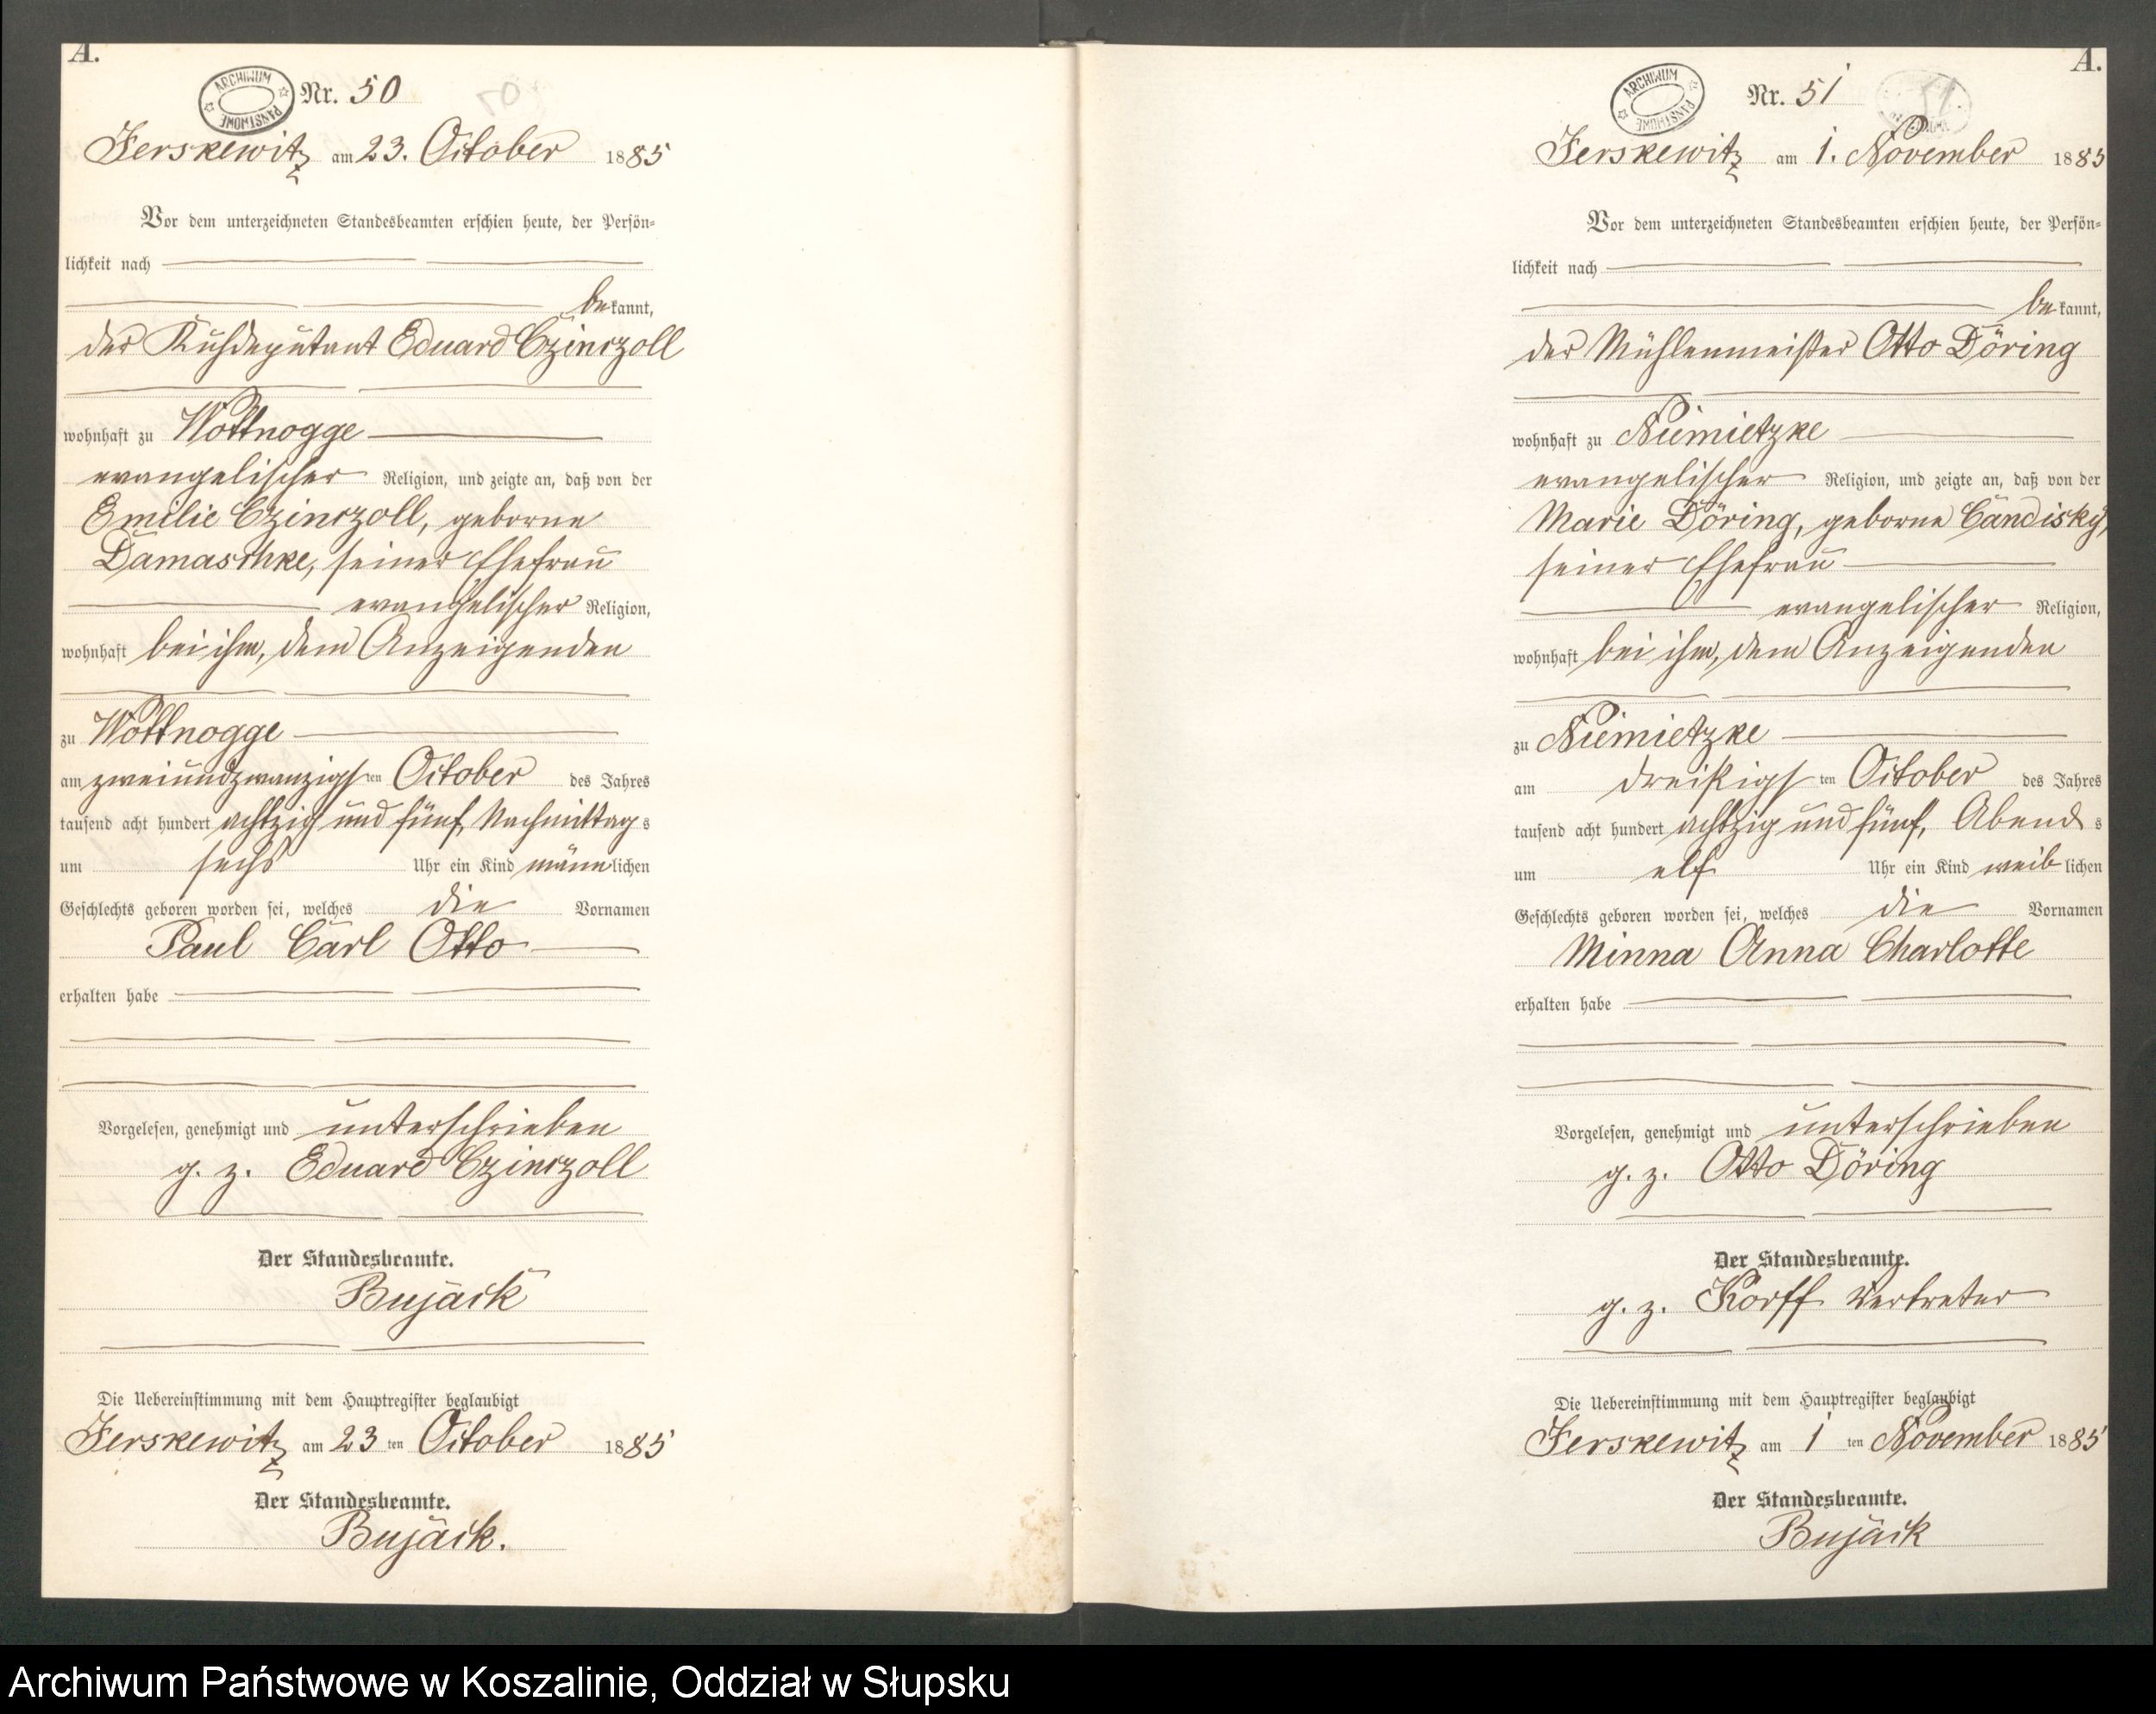 A.
ARCHIWUM PAŃSTWOWE
Nr. 50
Jerskewitz am 23. October 1885
Vor dem unterzeichneten Standesbeamten erschien heute, der Persön-
lichkeit nach
bekannt,
der Kuhdeputant Eduard Czinczoll
wohnhaft zu Wottnogge
evangelischer Religion, und zeigte an, daß von der
Emilie Czinczoll, geborne
Damaschke, seiner Ehefrau
evangelischer Religion,
wohnhaft bei ihm, dem Anzeigenden
zu Wottnogge
am zweiundzwanzigsten October des Jahres
tausend acht hundert achtzig und fünf, Nachmittags
um sechs Uhr ein Kind männlichen
Geschlechts geboren worden sei, welches die Vornamen
Paul Carl Otto
erhalten habe
Vorgelesen, genehmigt und unterschrieben
g. z. Eduard Czinczoll
Der Standesbeamte.
Bujack
Die Uebereinstimmung mit dem Hauptregister beglaubigt
Jerskewitz am 23ten October 1885
Der Standesbeamte.
Bujack.
A.
ARCHIWUM PAŃSTWOWE
Nr. 51
Jerskewitz am 1. November 1885
Vor dem unterzeichneten Standesbeamten erschien heute, der Persön-
lichkeit nach
bekannt,
der Mühlenmeister Otto Döring
wohnhaft zu Niemietzke
evangelischer Religion, und zeigte an, daß von der
Marie Döring, geborne Candisky,
seiner Ehefrau
evangelischer Religion,
wohnhaft bei ihm, dem Anzeigenden
zu Niemietzke
am dreißigsten October des Jahres
tausend acht hundert achtzig und fünf, Abends
um elf Uhr ein Kind weiblichen
Geschlechts geboren worden sei, welches die Vornamen
Minna Anna Charlotte
erhalten habe
Vorgelesen, genehmigt und unterschrieben
g. z. Otto Döring
Der Standesbeamte.
g. z. Korff Vertreter
Die Uebereinstimmung mit dem Hauptregister beglaubigt
Jerskewitz am 1ten November 1885
Der Standesbeamte.
Bujack
Archiwum Państwowe w Koszalinie, Oddział w Słupsku